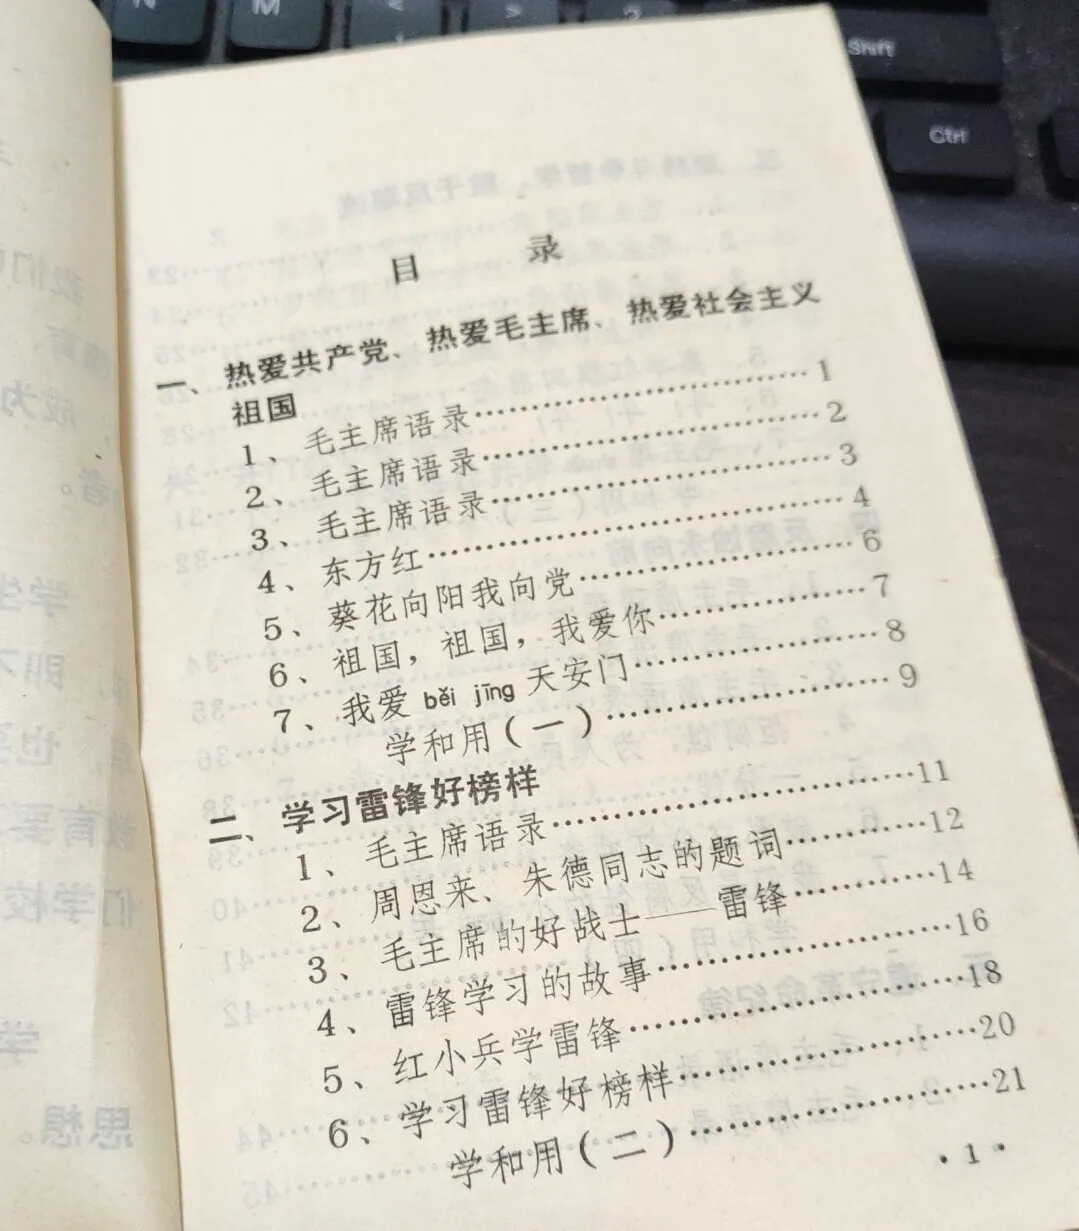 目 录
一、热爱共产党、热爱毛主席、热爱社会主义
祖国
1、毛主席语录……………………………1
2、毛主席语录……………………………2
3、毛主席语录……………………………3
4、东方红…………………………………4
5、葵花向阳我向党………………………6
6、祖国,祖国,我爱你…………………7
7、我爱 běi jīng 天安门………………8
学和用(一)……………………………9
二、学习雷锋好榜样
1、毛主席语录……………………………11
2、周恩来、朱德同志的题词……………12
3、毛主席的好战士——雷锋……………14
4、雷锋学习的故事………………………16
5、红小兵学雷锋…………………………18
6、学习雷锋好榜样………………………20
学和用(二)……………………………21
·1·
N
M
Shift
Ctrl